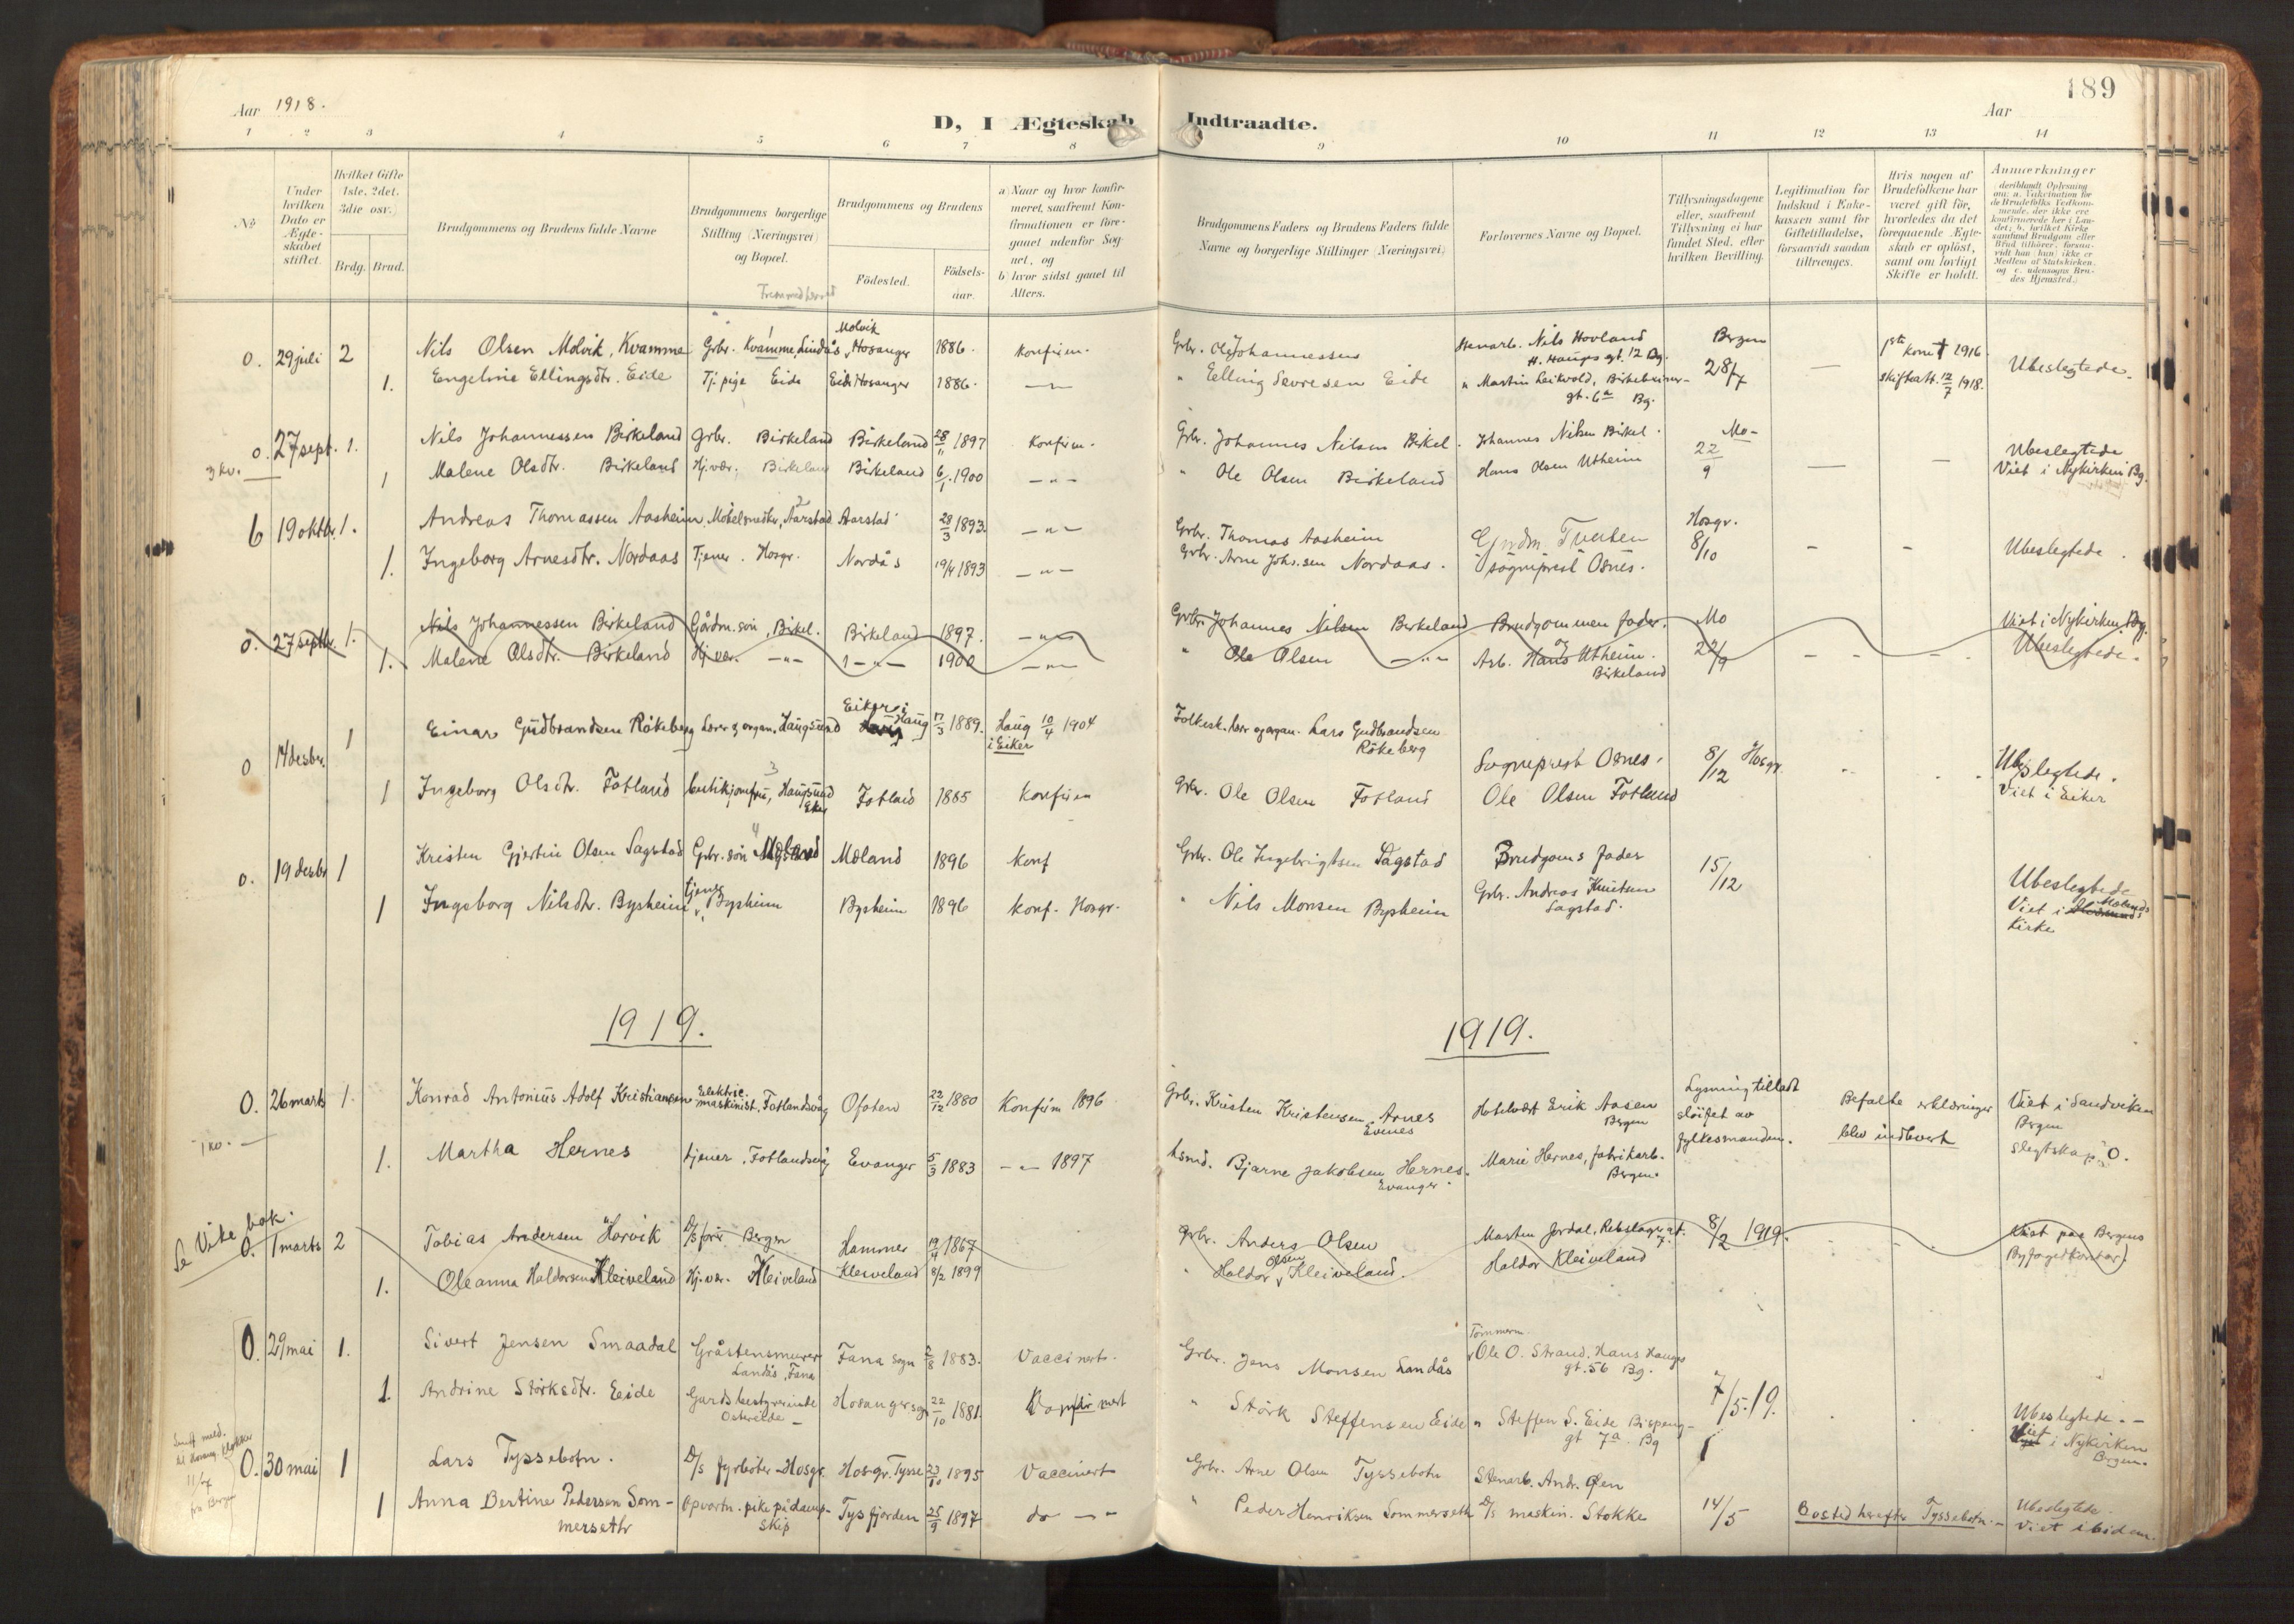 189
Aar 1918.
D, I Ægteskab Indtraadte.
Aar
1 2 3 4 5 6 7 8 9 10 11 12 13 14
No
Under hvilken Dato er Ægteskabet stiftet.
Hvilket Gifte 1ste, 2det, 3die osv.)
Brdg. Brud.
Brudgommens og Brudens fulde Navne
Brudgommens borgerlige Stilling (Næringsvei) og Bopæl.
Brudgommens og Brudens
Födested.
Födsels-aar.
a) Naar og hvor konfir-
meret, saafremt Kon-
firmationen er fore-
gaaet udenfor Sog-
net, og
b) hvor sidst gaaet til
Alters.
Brudgommens Faders og Brudens Faders fulde
Navne og borgerlige Stillinger (Næringsvei)
Forlovernes Navne og Bopæl.
Tillysningsdagene
eller, saafremt
Tillysning ei har
fundet Sted, efter
hvilken Bevilling.
Legitimation for
Indskud i Enke-
kassen samt for
Giftetilladelse,
forsaavidt saadan
tiltrænges.
Hvis nogen af
Brudefolkene har
været gift för,
hvorledes da det
foregaaende Ægte-
skab er oplöst,
samt om lovligt
Skifte er holdt.
Anmærkninger
(deriblandt Oplysning
om: a. Vakcination for
de Brudefolks Vedkom-
mende, der ikke ere
konfirmerede her i Lan-
det; b. hvilket Kirke
samfund Brudgom eller
Brud tilhörer, forsaa-
vidt han (hun) ikke er
Medlem af Statskirken.
og c. udensogns Bru-
des Hjemsted.)
Fremmed herred
0. 29 juli 2 Nils Olsen Molvik, Kvamme Grbr. Kvamme, Lindås Molvik, Hosanger 1886. Konfirm. Grbr. Ole Johannessen Stenarb. Nils Hovland H. Hauges gt. 12 Bg. Bergen 1ste kone † 1916.
1. Engeline Ellingsdtr. Eide Tj. pige Eide Eide Hosanger 1886. —"— " Elling Severesen Eide " Martin Leikvold, Birkebeiner- gt. 6a Bg. 28/7 — skifteatt. 12/7 1918. Ubeslegtede.
0. 27 sept. 1. Nils Johannessen Birkeland Grbr. Birkeland Birkeland 28/11 1897 Konfirm. Grbr. Johannes Nilsen Birkel. Johannes Nilsen Birkel. Mo- 22/9 Ubeslegtede
1 Malene Olsdtr. Birkeland Hj.vær. Birkeland Birkeland 6/1 1900 —"— " Ole Olsen Birkeland Hans Olsen Utheim — — Viet i Nykirken Bg.
6 19 oktbr. 1. Andreas Thomassen Aasheim Möbelsnedker, Aarstad Aarstad 28/3 1893. —"— Grbr. Thomas Aasheim Hosgr. 8/10
1. Ingeborg Arnesdtr. Nordaas Tjener. Hosgr. Nordås 19/4 1893 —"— Grbr. Arne Johs.sen Nordaas. sogneprest Osnes. - - Ubeslegtede.
0. 27 septbr. 1. Nils Johannessen Birkeland Gårdm. sön, Birkel. Birkeland 1897. —"— Grbr. Johannes Nilsen Birkeland Brudgommen fader. Mo Viet i Nykirken, Bg.
1. Malene Olsdtr. Birkeland Hj.vær. —"— —"— 1900 —"— " Ole Olsen —"— og Arb. Hans Utheim. Birkeland 22/9 - - Ubeslegtede.
0 14 desbr. 1 Einar Gudbrandsen Rökeberg Lærer og organ. Haugsund Eiker i Haug 17/3 1889. Haug i Eiker 10/4 1904 Folkesk. lærer og organ. Lars Gudbrandsen Rökeberg Sogneprest Osnes. 8/12 Hosgr. Ubeslegtede.
1 Ingeborg Olsdtr. Fotland butikjomfru, Haugsund Eker Fotland 1885 Konfirm Grbr. Ole Olsen Fotland Ole Olsen Fotland Viet i Eiker
0. 19 desbr 1 Kristen Gjertin Olsen Sagstad Grbr. sön Moland Moland 1896 Konf Grbr. Ole Ingebrigtsen Sagstad Brudgoms fader 15/12
1 Ingeborg Nilsdtr. Bysheim tjener, Bysheim Bysheim 1896 Konf. Hosgr. " Nils Monsen Bysheim Grbr. Andreas Knutsen Sagstad. Ubeslegtede Viet i Molands Kirke
1919. 1919.
0. 26 marts 1. Konrad Antonius Adolf Kristiansen Elektric. maskinist. Fotlandsvåg Ofoten 22/12 1880 Konfirm 1896 Grbr. Kristen Kristensen Arnes Evenes Hotelvært Erik Aasen Bergen Lysning tilladt slöifet av fylkesmanden. Befalte erklæringer blev indlevert Viet i Sandviken Bergen
1. Martha Hernes tjener. Fotlandsvåg Evanger 5/3 1883 —"— 1897 Husmd. Bjarne Jakobsen Hernes. Evanger. Marie Hernes, fabrikarb. Bergen. Slegtskap: 0.
Se Vike bok.
0. 1 marts 2 Tobias Andersen Horvik D/s förer Bergen Hammer 19/4 1867 Grbr. Anders Olsen Morten Jordal, Rebslagergt. 7. 8/2 1919. Viet paa Bergens
1. Oleanna Haldorsen Kleiveland Hj.vær. Kleiveland Kleiveland 8/2 1899 " Haldor Olsen Kleiveland. Haldor Kleiveland Byfogedkontor.
0. 29 mai 1. Sivert Jensen Smaadal Gråstensmurer Landås, Fana Fana sogn 2/8 1883. Vaccinert. Grbr. Jens Monsen Landås Tömmerm. Ole O. Strand, Hans Hauges gt. 56 Bg.
1. Andrine Störksdtr. Eide Gardsbestyrerinde Ostereide Hosanger sogn 22/10 1881 " Störk Steffensen Eide " Steffen S. Eide Bispeng- gt 7a. Bg 7/5.19. Ubeslegtede.- Viet i Nykirken Bergen.
0. 30 mai 1 Lars Tyssebotn. D/s fyrböter-Hosgr. Hosgr. Tysse 23/10 1895 Vaccinert Grbr. Arne Olsen Tyssebotn Stenarb. Andr. Öen
1 Anna Bertine Pedersen Som- merseth Opvartn. pike på damp- skip Tysfjorden 25/9 1897 do —"— " Peder Henriksen Sommerseth D/s maskin. Stokke 14/5 Bosted herefter Tyssebotn.- Ubeslegtede. Viet ibidem.